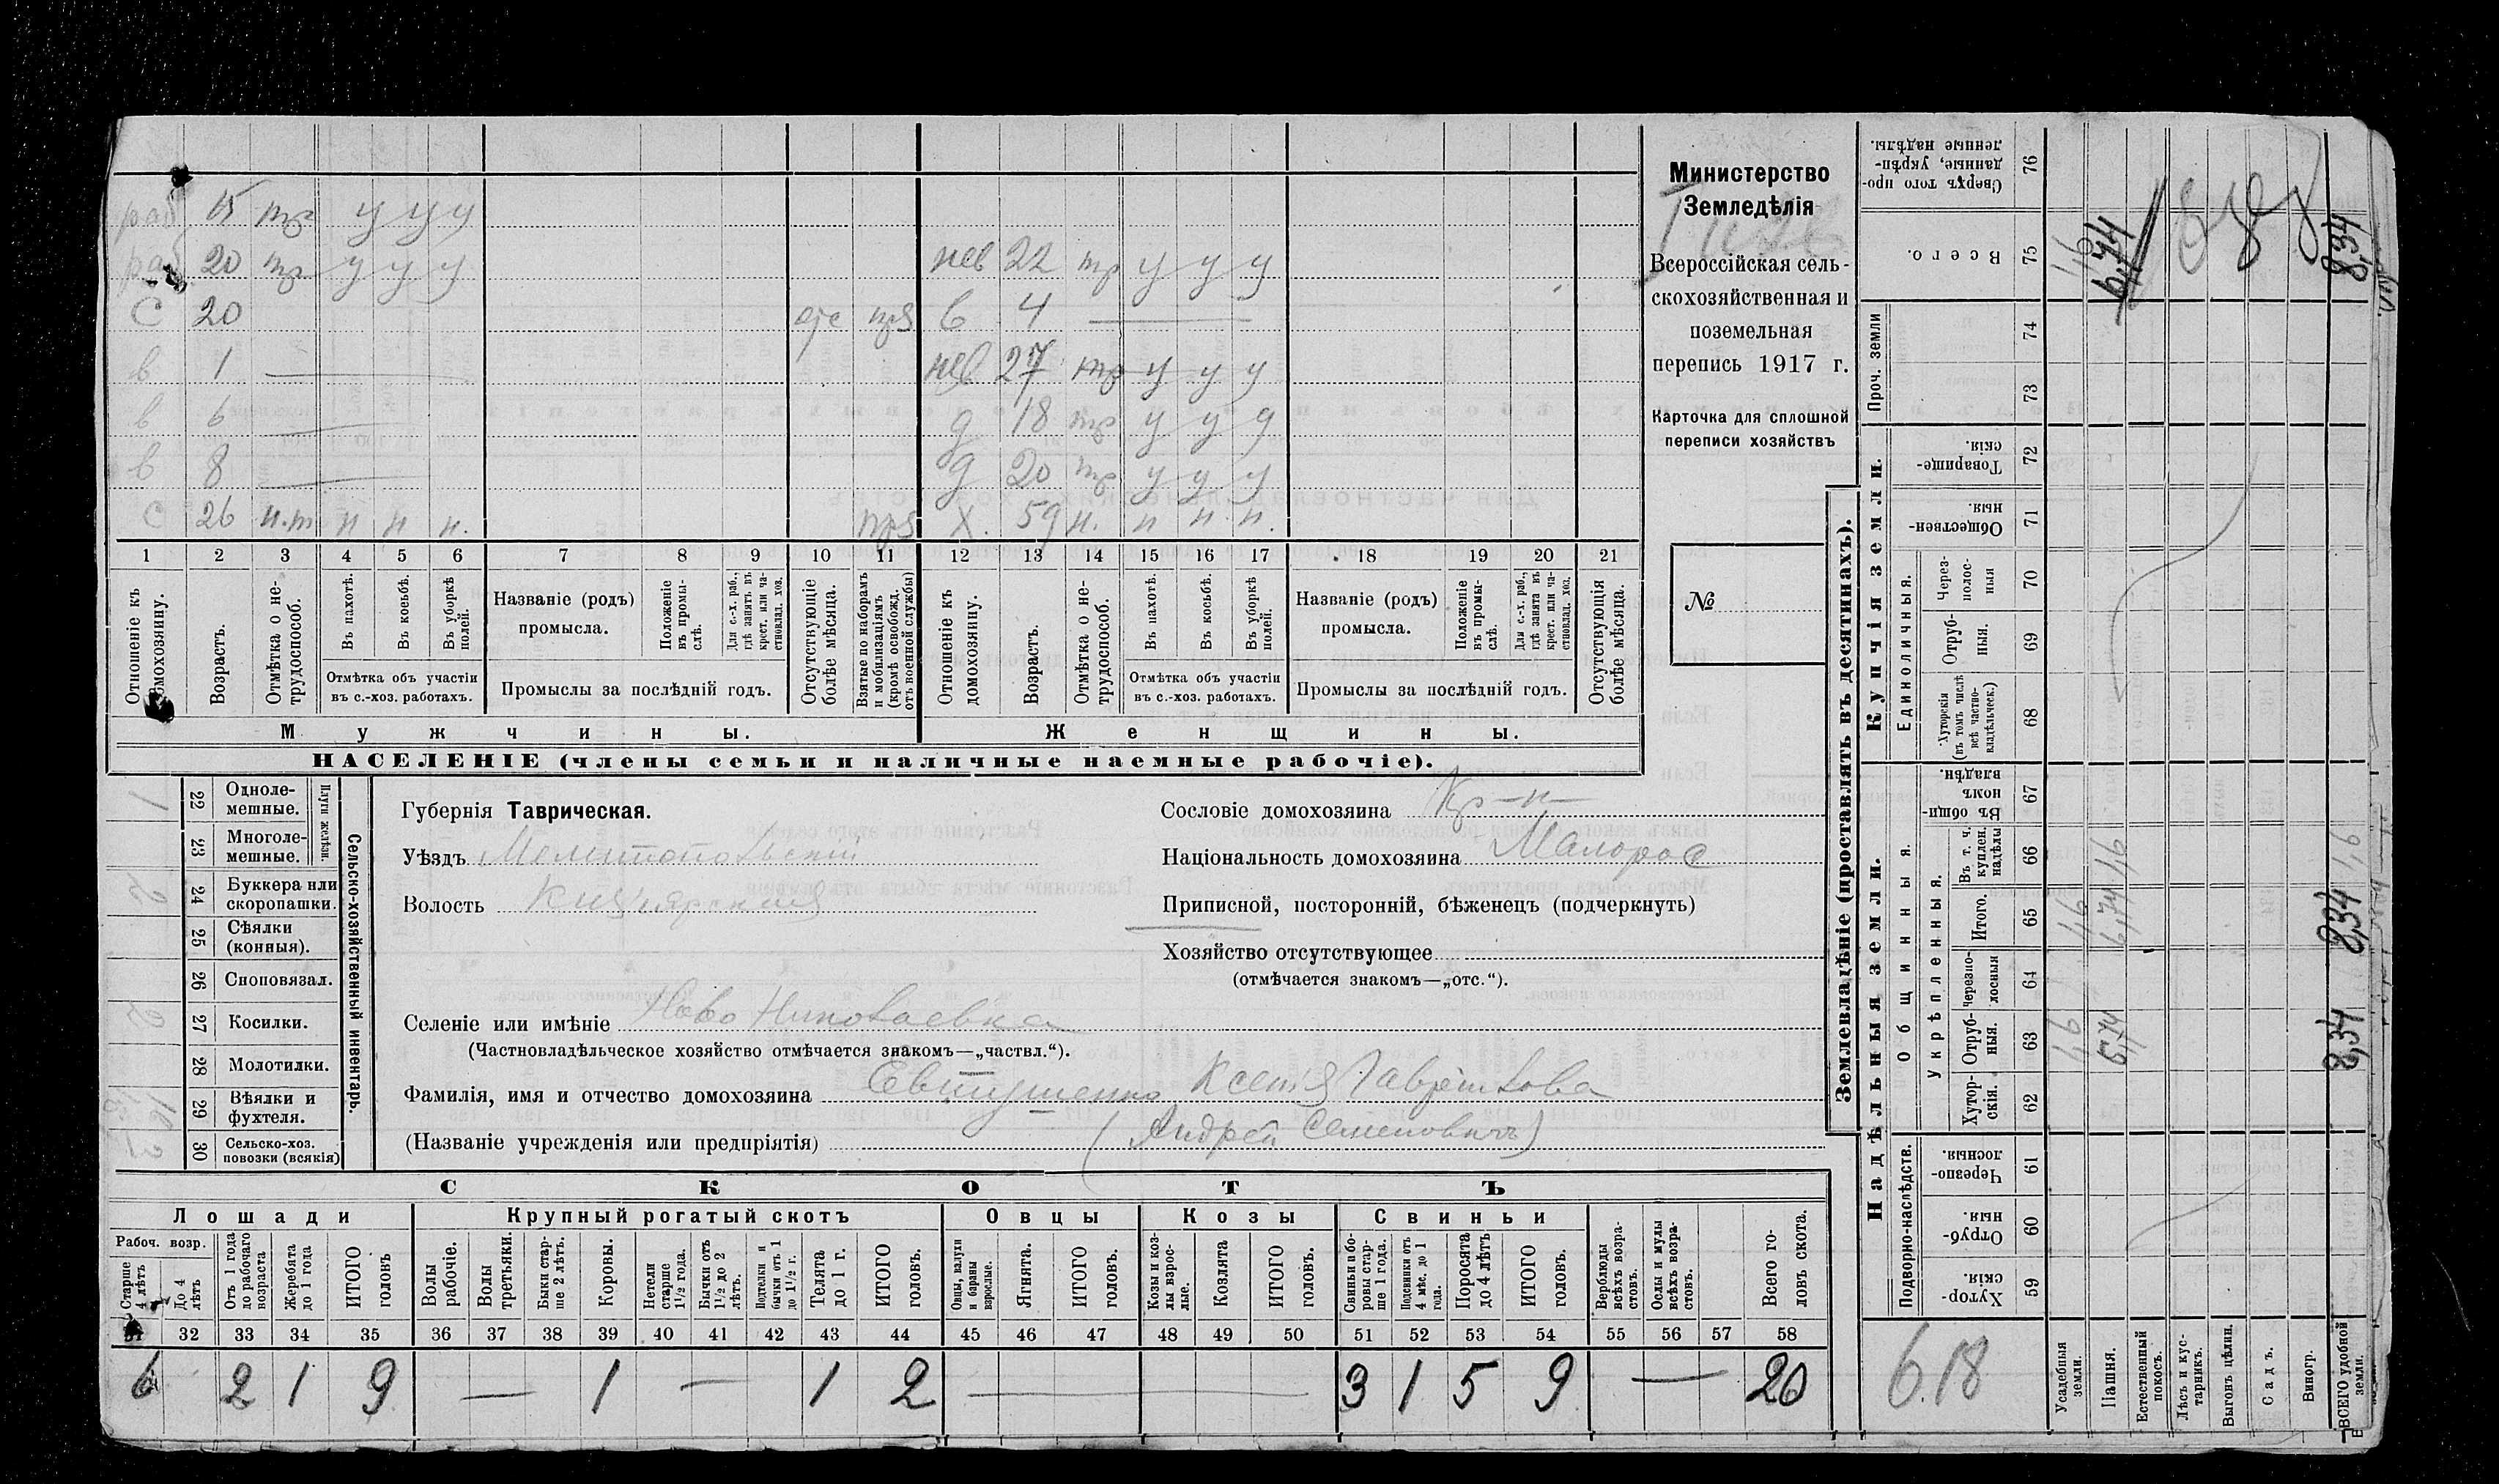 раб 15 тр у у у
раб 20 тр у у у нев 22 тр у у у
С 20 отс в 4 —
в 1 — нев 27 тр у у у
в 6 — д 18 тр у у у
в 8 — д 20 тр у у у
С 26 н.т н н н. Х. 59 н. н н. н.
1 2 3 4 5 6 7 8 9 10 11 12 13 14 15 16 17 18 19 20 21
Отношеніе къ домохозяину.
Возрастъ.
Отмѣтка о не-
трудоспособ.
Въ пахотѣ.
Въ косьбѣ.
Въ уборкѣ
полей.
Отмѣтка объ участіи
въ с.-хоз. работахъ.
Названіе (родъ)
промысла.
Положеніе
въ промы-
слѣ.
Для с.-х. раб.,
гдѣ занятъ въ
крест. или ча-
стновлад. хоз.
Промыслы за послѣдній годъ.
Отсутствующіе
болѣе мѣсяца.
Взятые по наборамъ
и мобилизаціямъ
(кромѣ освобожд.
отъ военной службы)
Отношеніе къ
домохозяину.
Возрастъ.
Отмѣтка о не-
трудоспособ.
Въ пахотѣ.
Въ косьбѣ.
Въ уборкѣ
полей.
Отмѣтка объ участіи
въ с.-хоз. работахъ.
Названіе (родъ)
промысла.
Положеніе
въ промы-
слѣ.
Для с.-х. раб.,
гдѣ занята въ
крест. или ча-
стновлад. хоз.
Промыслы за послѣдній годъ.
Отсутствующія
болѣе мѣсяца.
Мужчины. Женщины.
НАСЕЛЕНІЕ (члены семьи и наличные наемные рабочіе).
Министерство
Земледѣлія
Всероссійская сель-
скохозяйственная и
поземельная
перепись 1917 г.
Карточка для сплошной
переписи хозяйствъ
№
1 22 Одноле-
мешные.
23 Многоле-
мешные.
Плуги желѣзн.
24 Буккера или
скоропашки.
25 Сѣялки
(конныя).
26 Сноповязал.
27 Косилки.
28 Молотилки.
29 Вѣялки и
фухтеля.
30 Сельско-хоз.
повозки (всякія)
Сельско-хозяйственный инвентарь.
Губернія Таврическая.
Уѣздъ Мелитопольскій
Волость
Сословіе домохозяина Кр-н
Національность домохозяина Малорос
Приписной, посторонній, бѣженецъ (подчеркнуть)
Хозяйство отсутствующее
(отмѣчается знакомъ—„отс.“).
Селеніе или имѣніе Ново Николаевка
(Частновладѣльческое хозяйство отмѣчается знакомъ—„частвл.“).
Фамилія, имя и отчество домохозяина Евтушенко Ксенія Гавриілова
(Названіе учрежденія или предпріятія) (Андрей Семеновичъ)
СКОТЪ
Лошади Крупный рогатый скотъ Овцы Козы Свиньи
Рабоч. возр.
Старше
4 лѣтъ
До 4
лѣтъ
Отъ 1 года
до рабочаго
возраста
Жеребята
до 1 года
ИТОГО
головъ
Волы
рабочіе.
Волы
третьяки.
Быки стар-
ше 2 лѣтъ.
Коровы.
Нетели
старше
1½ года.
Бычки отъ
1½ до 2
лѣтъ.
Подтелки и
бычки отъ 1
до 1½ г.
Телята
до 1 г.
ИТОГО
головъ.
Овцы, валухи
и бараны
взрослые.
Ягнята.
ИТОГО
головъ.
Козы и коз-
лы взрос-
лые.
Козлята
ИТОГО
головъ.
Свиньи и бо-
ровы стар-
ше 1 года.
Подсвинки отъ
4 мѣс. до 1
года.
Поросята
до 4 лѣтъ
ИТОГО
головъ.
Верблюды
всѣхъ возра-
стовъ.
Ослы и мулы
всѣхъ возра-
стовъ.
Всего го-
ловъ скота.
32 33 34 35 36 37 38 39 40 41 42 43 44 45 46 47 48 49 50 51 52 53 54 55 56 57 58
6 2 1 9 — 1 — 1 2 — 3 1 5 9 — 20
Землевладѣніе (проставлять въ десятинахъ).
Надѣльныя земли. Купчія земли. Проч. земли
Подворно-наслѣдств.
Общинныя.
Укрѣпленныя.
Единоличныя.
Сверхъ того про-
данные, укрѣп-
ленные надѣлы. 76
Всего. 75 6,74 8,34
74
73
Товарище-
скія. 72
Обществен-
ныя. 71
Через-
полос-
ныя 70
Отруб-
ныя. 69
Хуторскія
(въ томъ числѣ
всѣ частно-
владѣльческ.) 68
Въ общин-
номъ
владѣн. 67
Въ т. ч.
куплен.
надѣлы 66 1,6 1,6
Итого. 65 1,6 6,74 8,34
Черезпо-
лосныя 64
Отруб-
ныя. 63 1,6 8,34
Хутор-
скія. 62
Черезпо-
лосныя. 61
Отруб-
ныя. 60
Хутор-
скія. 59
6.18
Усадебныя
земли.
Пашня.
Естественный
покосъ.
Лѣсъ и кус-
тарникъ.
Выгонъ цѣлин.
Садъ.
Виногр.
ВСЕГО удобной
земли.